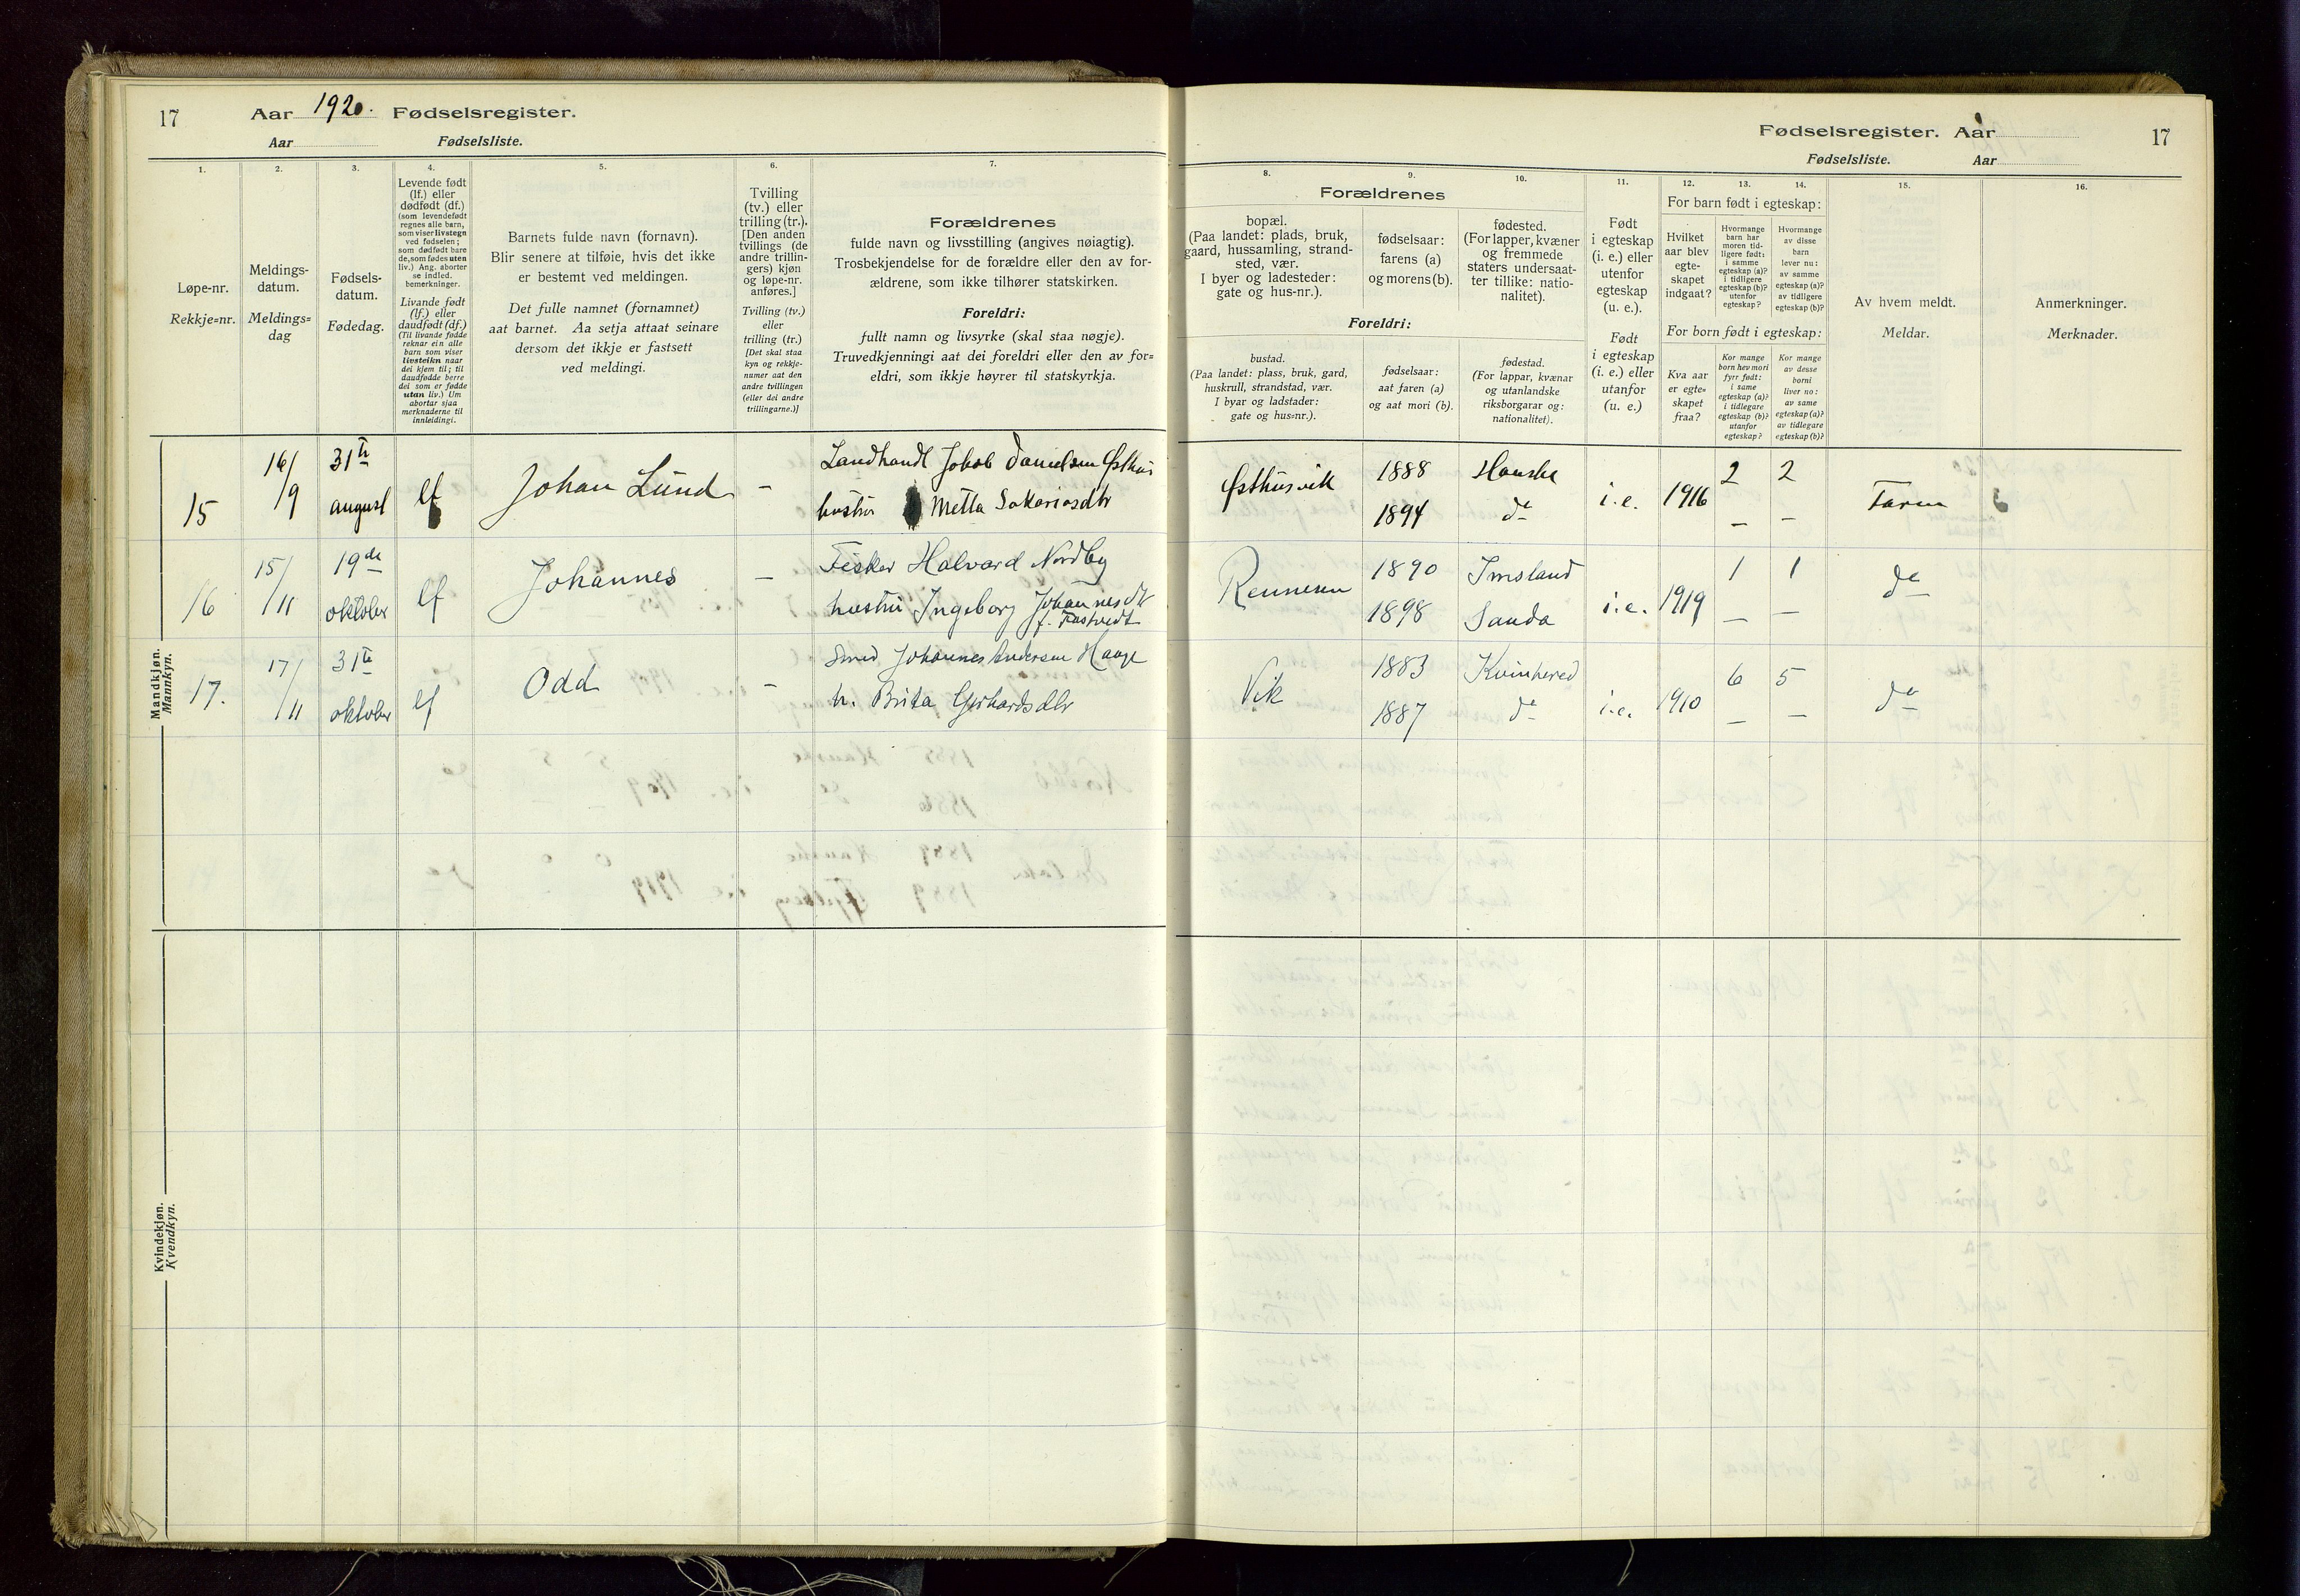 17 Aar 1920. Fødselsregister.
Aar Fødselsliste.
1.
Løpe-nr.
Rekkje=nr.
2.
Meldings-
datum.
Meldings=
dag
3.
Fødsels-
datum.
Fødedag.
4.
Levende født
(lf.) eller
dødfødt (df.)
(som levendefødt
regnes alle barn,
som viser livstegn
ved fødselen;
som dødfødt bare
de, som fødes uten
liv.) Ang. aborter
se indled.
bemerkninger.
Livande født
(lf.) eller
daudfødt (df.)
(Til livande fødde
reknar ein alle
barn som viser
livsteikn naar
dei kjem til; til
daudfødde berre
dei som er fødde
utan liv.) Um
abortar sjaa
merknaderne til
innleidingi.
5.
Barnets fulde navn (fornavn).
Blir senere at tilføie, hvis det ikke
er bestemt ved meldingen.
Det fulle namnet (fornamnet)
aat barnet. Aa setja attaat seinare
dersom det ikkje er fastsett
ved meldingi.
6.
Tvilling
(tv.) eller
trilling (tr.).
[Den anden
tvillings (de
andre trillin-
gers) kjøn
og løpe-nr.
anføres.]
Tvilling (tv.)
eller
trilling (tr.)
[Det skal staa
kyn og rekkje-
numer aat den
andre tvillingen
(eller dei andre
trillingarne.)]
7.
Forældrenes
fulde navn og livsstilling (angives nøiagtig).
Trosbekjendelse for de forældre eller den av for-
ældrene, som ikke tilhører statskirken.
Foreldri:
fullt namn og livsyrke (skal staa nøgje).
Truvedkjenningi aat dei foreldri eller den av for=
eldri, som ikkje høyrer til statskyrkja.
Mandkjøn.
Mannkyn.
15 16/9 31te august lf Johan Lund – Landhandl Jakob Danielsen Østhus
hustru Metta Sakariasdtr
16 15/11 19de oktober lf Johannes – Fisker Halvard Nordby
hustru Ingeborg Johannesdtr
17. 17/11 31te oktober lf Odd – Smed Johannes Andersen Hauge
h. Brita Gerhardsdtr
Kvindekjøn.
Kvendkyn.
Fødselsregister. Aar 17
Fødselsliste. Aar
8.
Forældrenes
bopæl.
(Paa landet: plads, bruk,
gaard, hussamling, strand-
sted, vær.
I byer og ladesteder:
gate og hus-nr.).
9.
fødselsaar:
farens (a)
og morens (b).
10.
fødested.
(For lapper, kvæner
og fremmede
staters undersaat-
ter tillike: natio-
nalitet).
Foreldri:
bustad.
(Paa landet: plass, bruk, gard,
huskrull, strandstad, vær.
I byar og ladstader:
gate og hus=nr.).
fødselsaar:
aat faren (a)
og aat mori (b).
fødestad.
(For lappar, kvænar
og utanlandske
riksborgarar og:
nationalitet).
11.
Født
i egteskap
(i. e.) eller
utenfor
egteskap
(u. e.).
Født
i egteskap
(i. e.) eller
utanfor
(u. e.)
12. 13. 14.
For barn født i egteskap:
Hvilket
aar blev
egte-
skapet
indgaat?
Hvormange
barn har
moren tid-
ligere født:
i samme
egteskap (a)?
i tidligere
egteskap (b)?
utenfor
egteskap?
Hvormange
av disse
barn
lever nu:
av samme
egteskap (a)?
av tidligere
egteskap (b)?
For born født i egteskap:
Kva aar
er egte=
skapet
fraa?
Kor mange
born hev mori
fyrr født:
i same
egteskap (a)?
i tidlegare
egteskap (b)?
utanfor
egteskap?
Kor mange
av desse
borni
liver no:
av same
egteskap (a)?
av tidlegare
egteskap (b)?
15.
Av hvem meldt.
Meldar.
16.
Anmerkninger.
Merknader.
Østhusvik 1888 Hauske i.e. 1916 2 2 Faren
1894 do – –
Rennesøu 1890 Imsland i.e. 1919 1 1 do
1898 Sauda – –
Vik 1883 Kvinhered i.e. 1910 6 5 do
1887 do – –